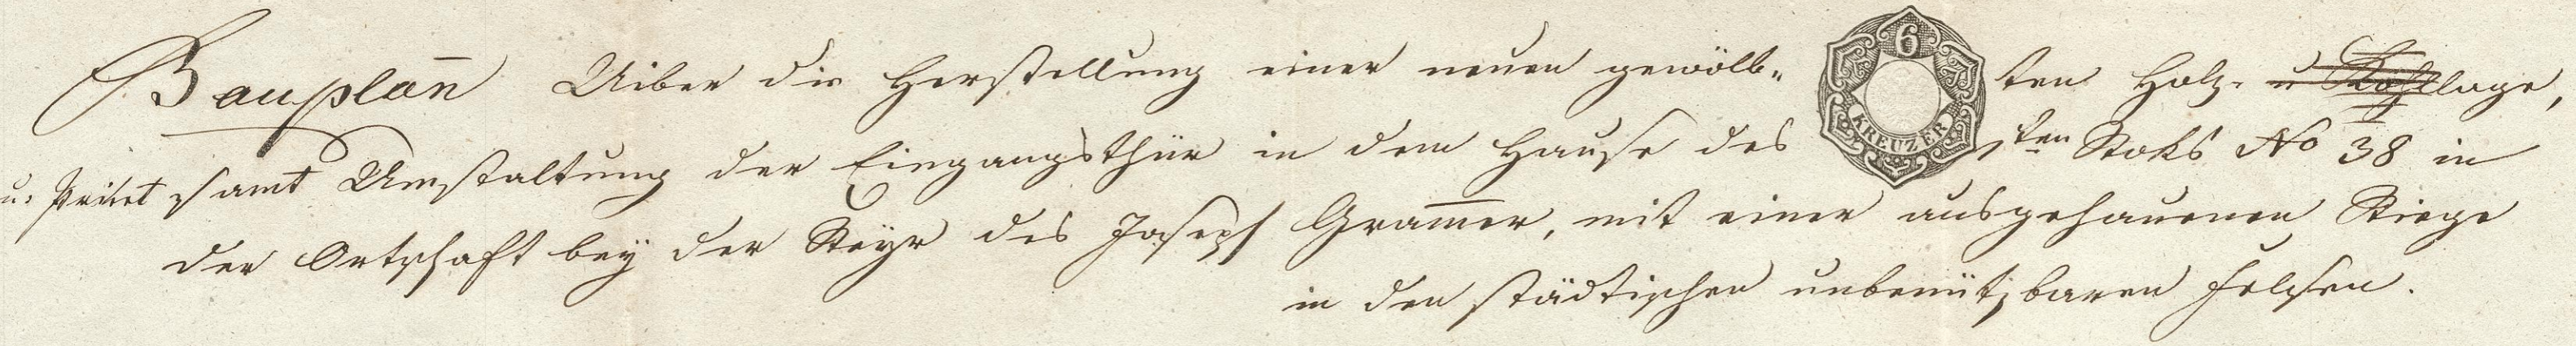 Bauplann Uiber die Herstellung einer neuen gewölb= 6 KREUZER ten Holz- u Kohllage,
u: Privet samt Umstaltung der Eingangsthür in dem Hause des 1ten Stoks No 38 in
der Ortschaft bey der Steyr des Joseph Gram̅er, mit einer ausgehauenen Stiege
in den städtischen unbenützbaren Felsen.